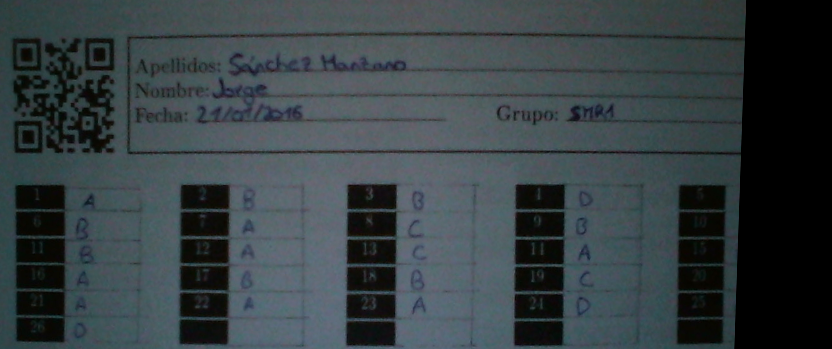 Apellidos: Sánchez Manzano
Nombre: Jorge
Fecha: 21/01/2016 Grupo: SMR1
1 A 2 B 3 B 4 D 5
6 B 7 A 8 C 9 B 10
11 B 12 A 13 C 14 A 15
16 A 17 B 18 B 19 C 20
21 A 22 A 23 A 24 D 25
26 D